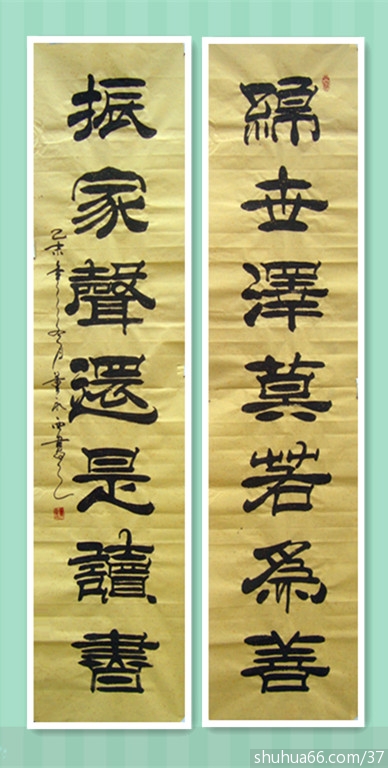 綿世澤莫若為善
振家聲還是讀書
shuhua66.com/37